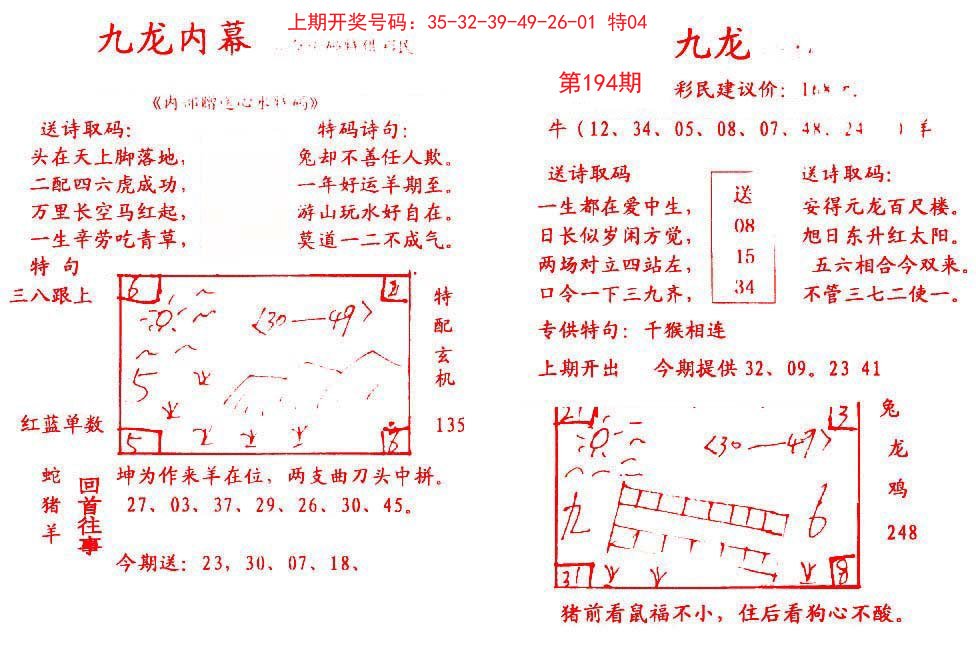 上期开奖号码：35-32-39-49-26-01 特04
九龙内幕
送诗取码：
头在天上脚落地，
二配四六虎成功，
万里长空马红起，
一生辛劳吃青草，
特码诗句：
兔却不善任人欺。
一年好运羊期至。
游山玩水好自在。
莫道一二不成气。
特句
三八跟上
红蓝单数
6
2
〈30—49〉
5
5
6
特配玄机
135
蛇猪羊
回首往事
坤为作来羊在位，两支曲刀头中拼。
27、03、37、29、26、30、45。
今期送：23，30、07、18、
九龙
第194期
彩民建议价：
牛（12、34、05、08、07、48、24 ）羊
送诗取码
一生都在爱中生，
日长似岁闲方觉，
两场对立四站左，
口令一下三九齐，
送
08
15
34
送诗取码：
安得元龙百尺楼。
旭日东升红太阳。
五六相合今双来。
不管三七二使一。
专供特句：千猴相连
上期开出 今期提供32、09。23 41
21
3
〈30—49〉
九
6
31
8
兔龙鸡
248
猪前看鼠福不小，住后看狗心不酸。